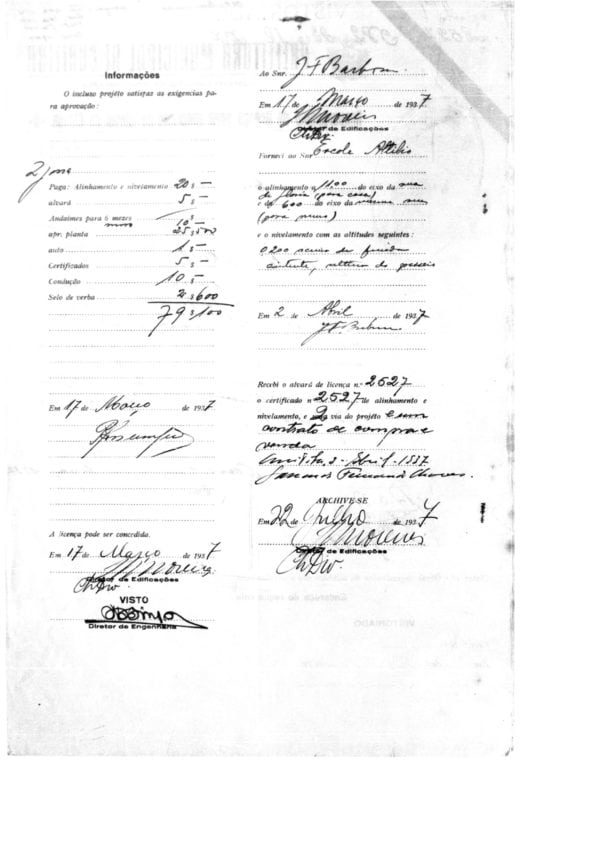 Informações
O incluso projéto satisfaz as exigencias pa-
ra aprovação:
Paga: Alinhamento e nivelamento 20$—
alvará 5$—
Andaimes para 6 mezes
muros 10$—
apr. planta 25$500
auto 1$—
Certificados 5$—
Condução 10$—
Selo de verba 2$600
79$100
Em 17 de Março de 1937
A licença pode ser concedida.
Em 17 de Março de 1937
Moreira
Diretor de Edificações
VISTO
Diretor de Engenharia
Ao Snr. J F Barbosa
Em 17 de Março de 1937
Moreira
Diretor de Edificações
Forneci ao Snr Ercole Attilio
o alinhamento n 11,00 do eixo da rua
da Gloria (para casa)
e de 6,00 do eixo da mesma rua
(para muro)
e o nivelamento com as altitudes seguintes:
0,200 acima da
altura do passeio
Em 2 de Abril de 1937
Recebi o alvará de licença n.º 2527
o certificado n 2527 de alinhamento e
nivelamento, e 2 via do projéto e um
contrato de compra e
venda
3 - Abril - 1937
ARCHIVE-SE
Em 22 de Julho de 1937
Moreira
Diretor de Edificações